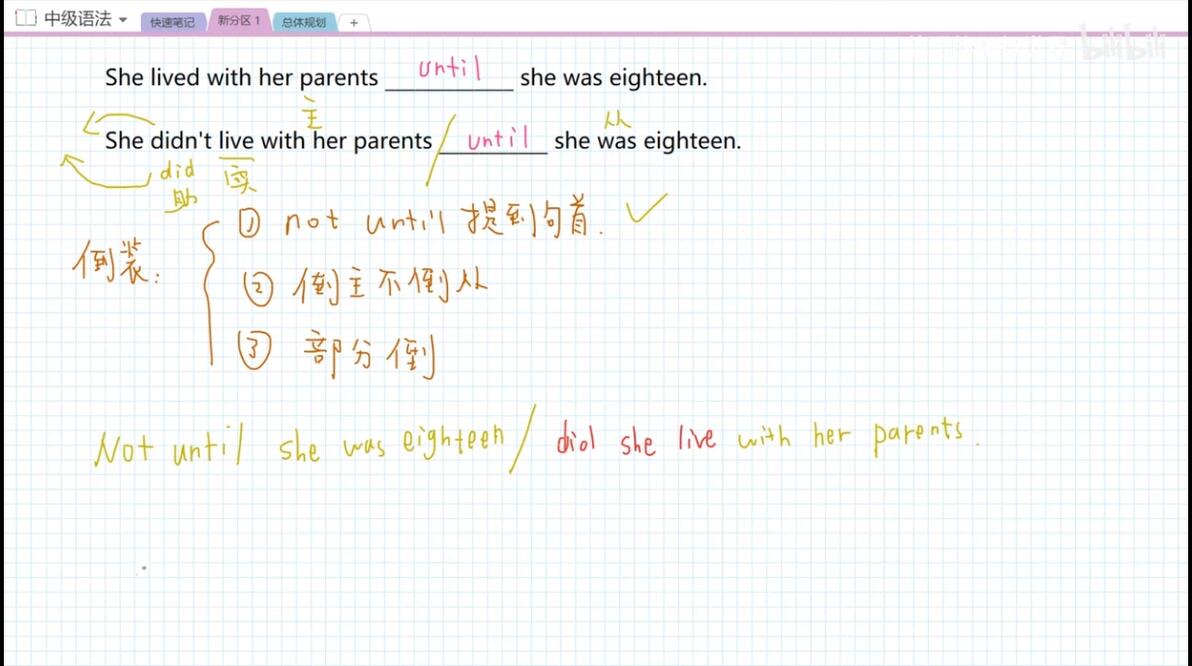 中级语法 快速笔记 新分区 1 总体规划 +
bilibili
She lived with her parents until she was eighteen.
主 从
She didn't live with her parents / until she was eighteen.
did 实
助
① not until 提到句首. ✓
倒装: ② 倒主不倒从
③ 部分倒
Not until she was eighteen / did she live with her parents.